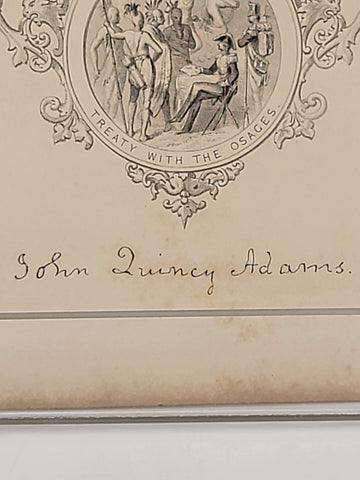 TREATY WITH THE OSAGES.
John Quincy Adams.